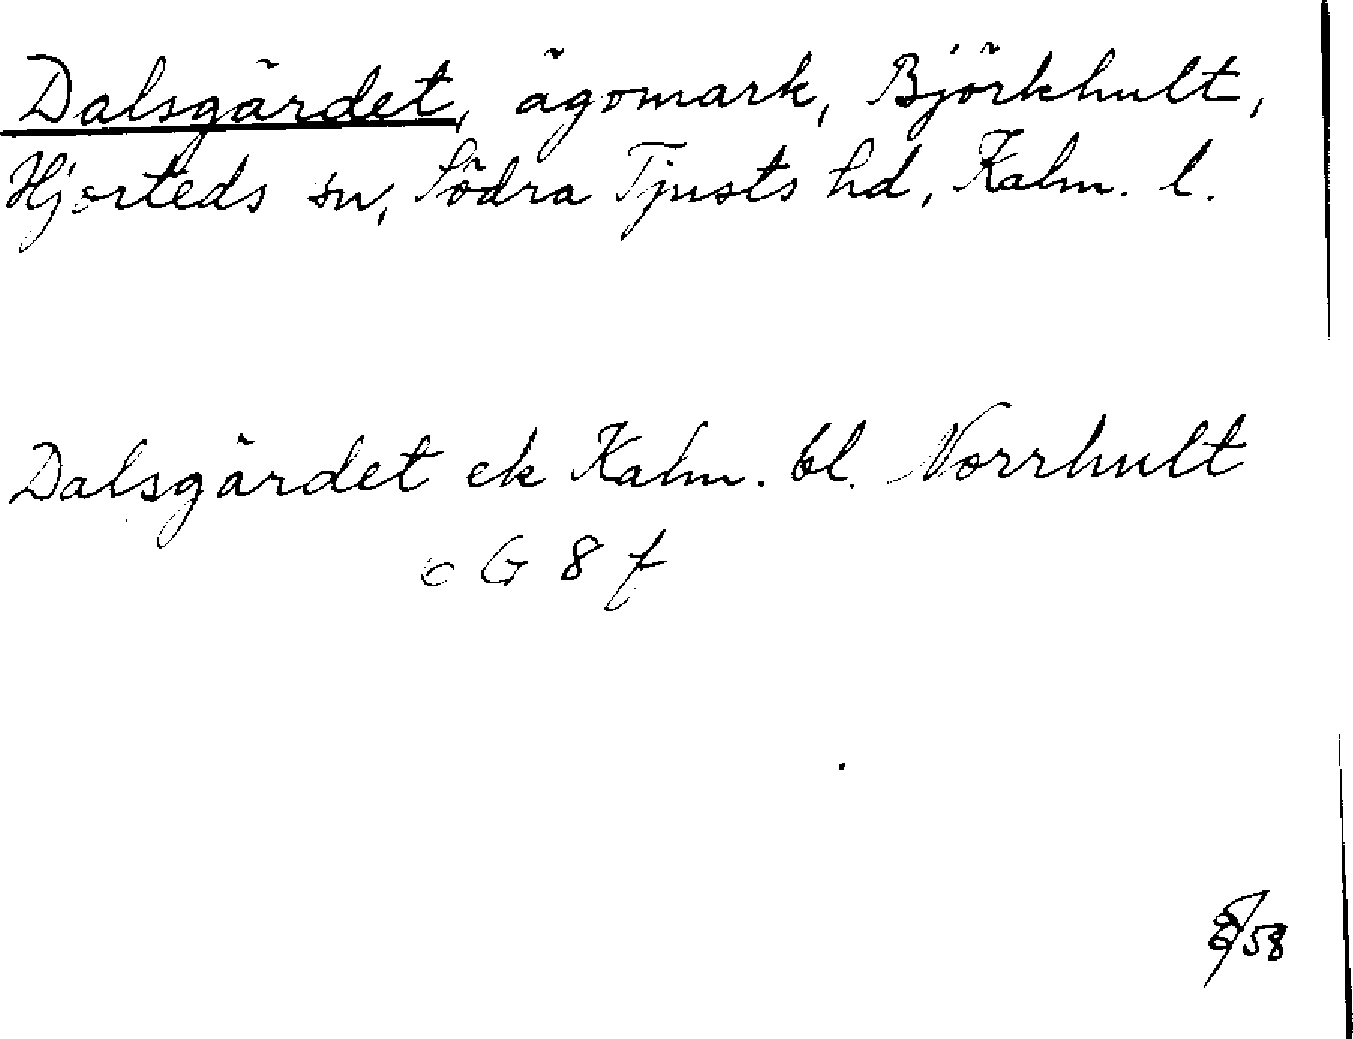 Dalsgärdet, ägomark, Björkhult,
Hjorteds sn, Södra Tjusts hd, Kalm. l.
Dalsgärdet ek Kalm. bl. Norrhult
6 G 8 f
58